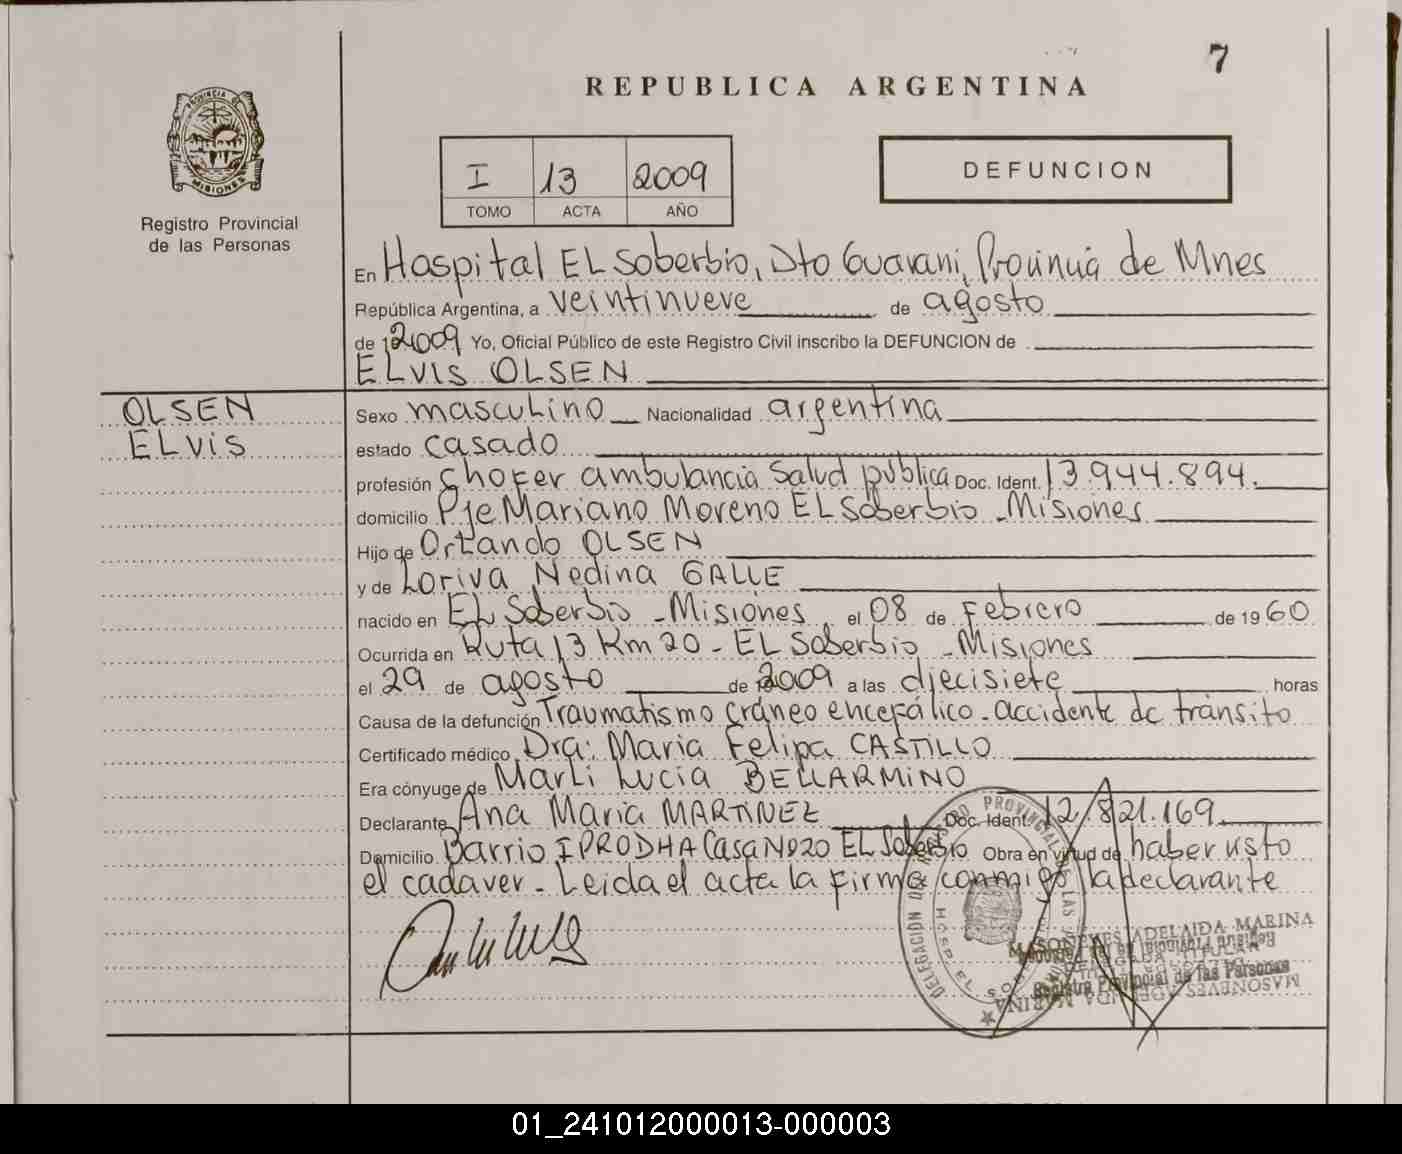 7
REPUBLICA ARGENTINA
PROVINCIA DE
MISIONES
Registro Provincial
de las Personas
I 13 2009
TOMO ACTA AÑO
DEFUNCION
En Hospital EL Soberbio, Dto Guarani, Provincia de Mnes
República Argentina, a veintinueve de agosto
de 2009 Yo, Oficial Público de este Registro Civil inscribo la DEFUNCION de
ELVIS OLSEN
OLSEN
ELVIS
Sexo masculino Nacionalidad argentina
estado casado
profesión Chofer ambulancia Salud pública Doc. Ident. 13.944.894.
domicilio Pje Mariano Moreno EL Soberbio - Misiones
Hijo de Orlando OLSEN
y de Loriva Nedina GALLE
nacido en EL Soberbio - Misiones el 08 de Febrero de 1960
Ocurrida en Ruta 13 Km 20 - EL Soberbio - Misiones
el 29 de agosto de 2009 a las diecisiete horas
Causa de la defunción Traumatismo cráneo encefálico - accidente de tránsito
Certificado médico Dra: Maria Felipa CASTILLO
Era cónyuge de Marli Lucia BELLARMINO
Declarante Ana Maria MARTINEZ Doc. Ident. 12.821.169
Domicilio Barrio IPRODHA Casa Nº 20 EL Soberbio Obra en virtud de haber visto
el cadaver - Leida el acta la firma conmigo la declarante
MASONEVES ADELAIDA MARINA
Registro Provincial de las Personas
01_241012000013-000003